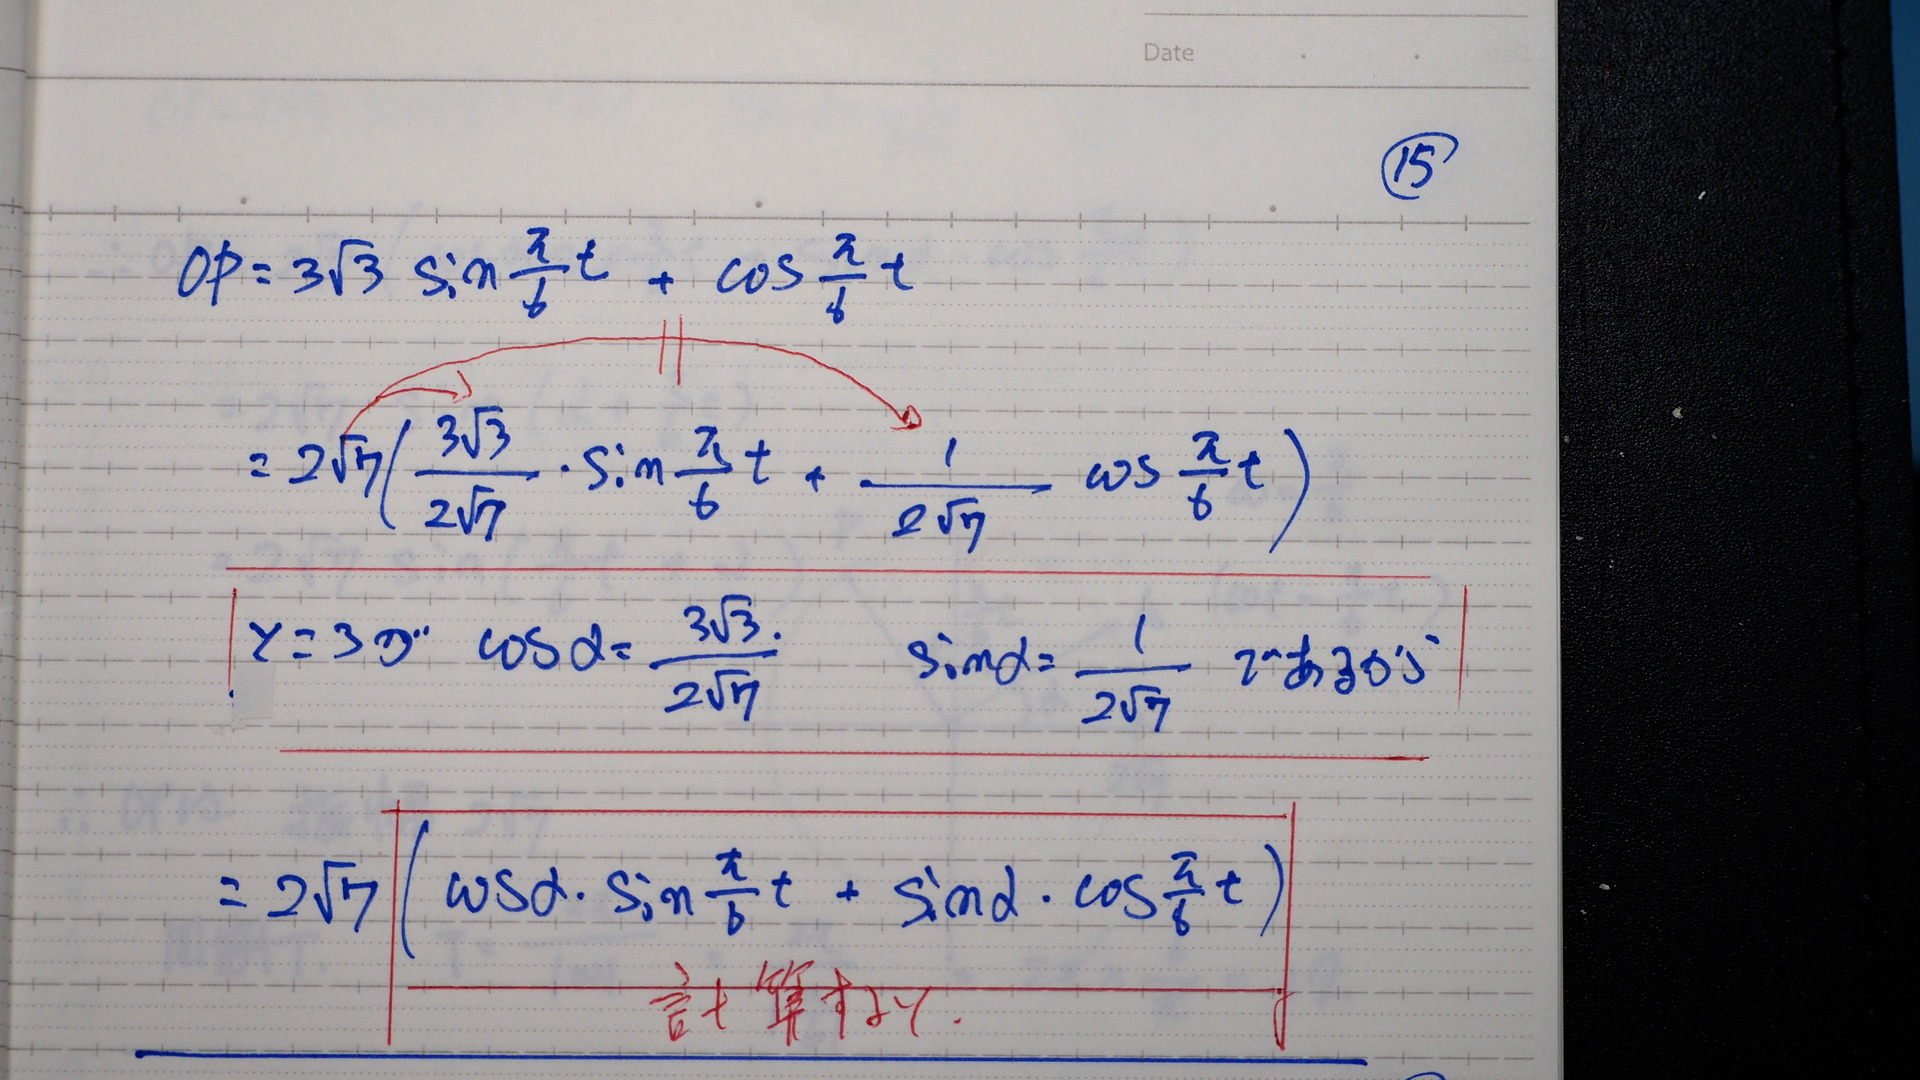 Date
⑮
OP = 3√3 sin π/6 t + cos π/6 t
= 2√7 ( 3√3/2√7 · sin π/6 t + 1/2√7 cos π/6 t )
γ = 3 が cos α = 3√3/2√7 . sin α = 1/2√7 であるから
= 2√7 ( cos α · sin π/6 t + sin α · cos π/6 t )
計算すると.